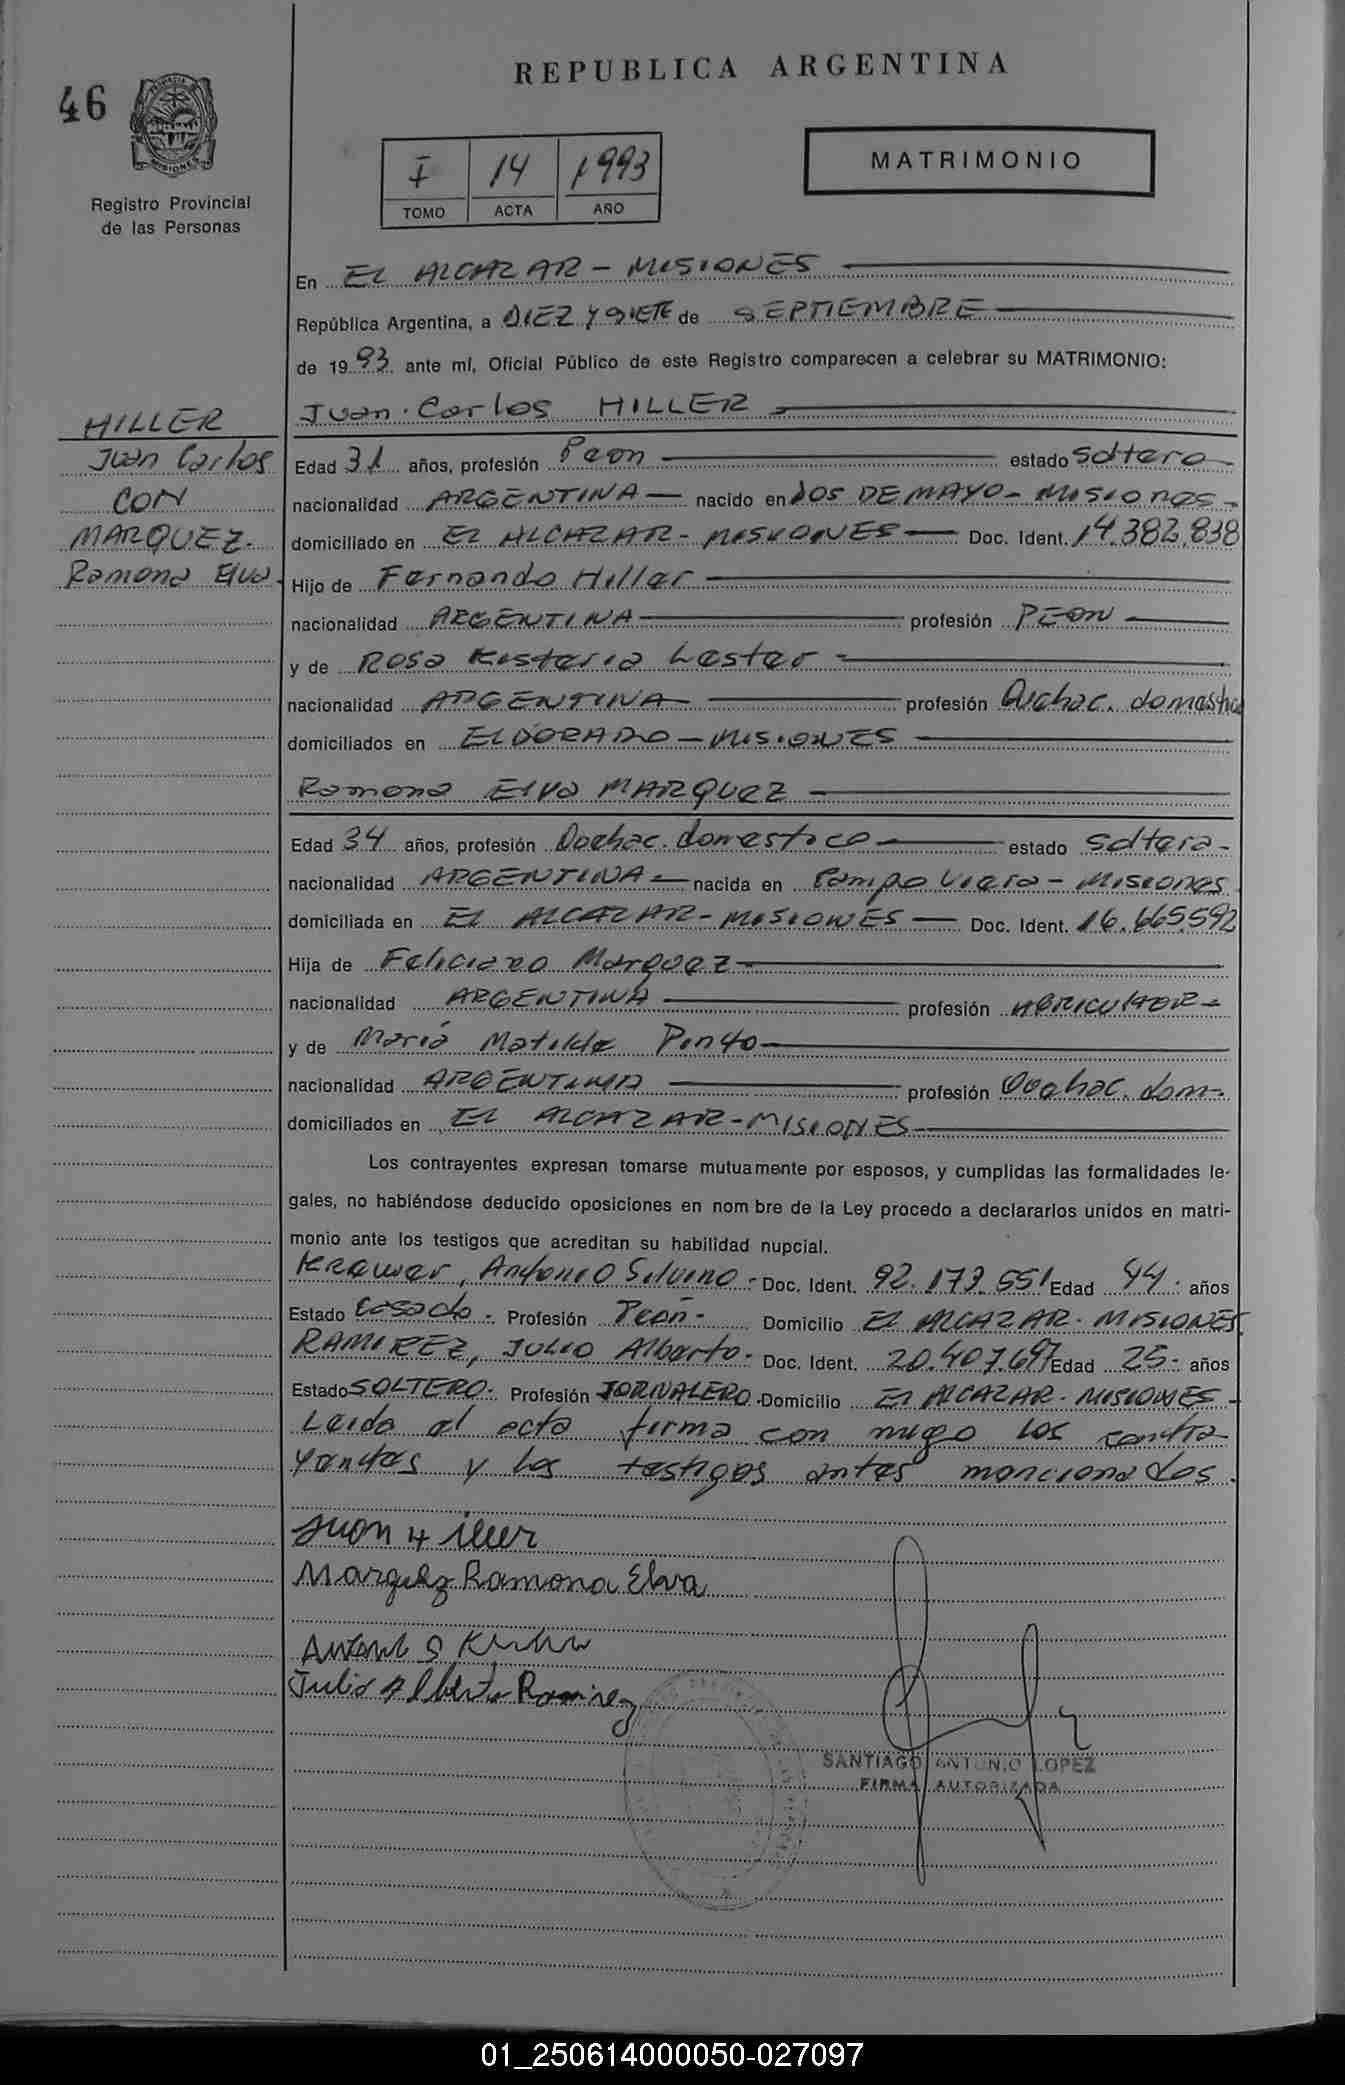 REPUBLICA ARGENTINA
46
MISIONES
Registro Provincial
de las Personas
I 14 1993
TOMO ACTA AÑO
MATRIMONIO
En EL ALCAZAR - MISIONES
República Argentina, a DIEZ Y SIETE de SEPTIEMBRE
de 1993 ante mí, Oficial Público de este Registro comparecen a celebrar su MATRIMONIO:
HILLER
Juan Carlos
CON
MARQUEZ.
Ramona Elva.
Juan Carlos HILLER
Edad 31 años, profesión Peon estado soltero
nacionalidad ARGENTINA nacido en DOS DE MAYO - MISIONES -
domiciliado en EL ALCAZAR - MISIONES Doc. Ident. 14.382.838
Hijo de Fernando Hiller
nacionalidad ARGENTINA profesión PEON
y de Rosa Lester
nacionalidad ARGENTINA profesión Quehac. domestico
domiciliados en ELDORADO - MISIONES
Ramona Elva MARQUEZ
Edad 34 años, profesión Quehac. domestico estado soltera -
nacionalidad ARGENTINA nacida en Campo Viera - Misiones
domiciliada en EL ALCAZAR - MISIONES Doc. Ident. 16.665.592
Hija de Feliciano Marquez
nacionalidad ARGENTINA profesión AGRICULTOR -
y de María Matilde Pinto
nacionalidad ARGENTINA profesión Quehac. dom-.
domiciliados en EL ALCAZAR - MISIONES
Los contrayentes expresan tomarse mutuamente por esposos, y cumplidas las formalidades le-
gales, no habiéndose deducido oposiciones en nom bre de la Ley procedo a declararlos unidos en matri-
monio ante los testigos que acreditan su habilidad nupcial.
Antonio Silvino - Doc. Ident. 92.173.551 Edad 44. años
Estado Casado. Profesión Peon - Domicilio EL ALCAZAR - MISIONES.
RAMIREZ, JULIO Alberto - Doc. Ident. 20.407.697 Edad 25- años
Estado SOLTERO. Profesión JORNALERO. Domicilio EL ALCAZAR - MISIONES -
Leida el acta firma con migo los contra
yentes y los testigos antes mencionados.
Juan Hiller
Marquez Ramona Elva
Antonio S
Julio Alberto Ramirez
SANTIAGO ANTONIO LOPEZ
FIRMA AUTORIZADA
01_250614000050-027097